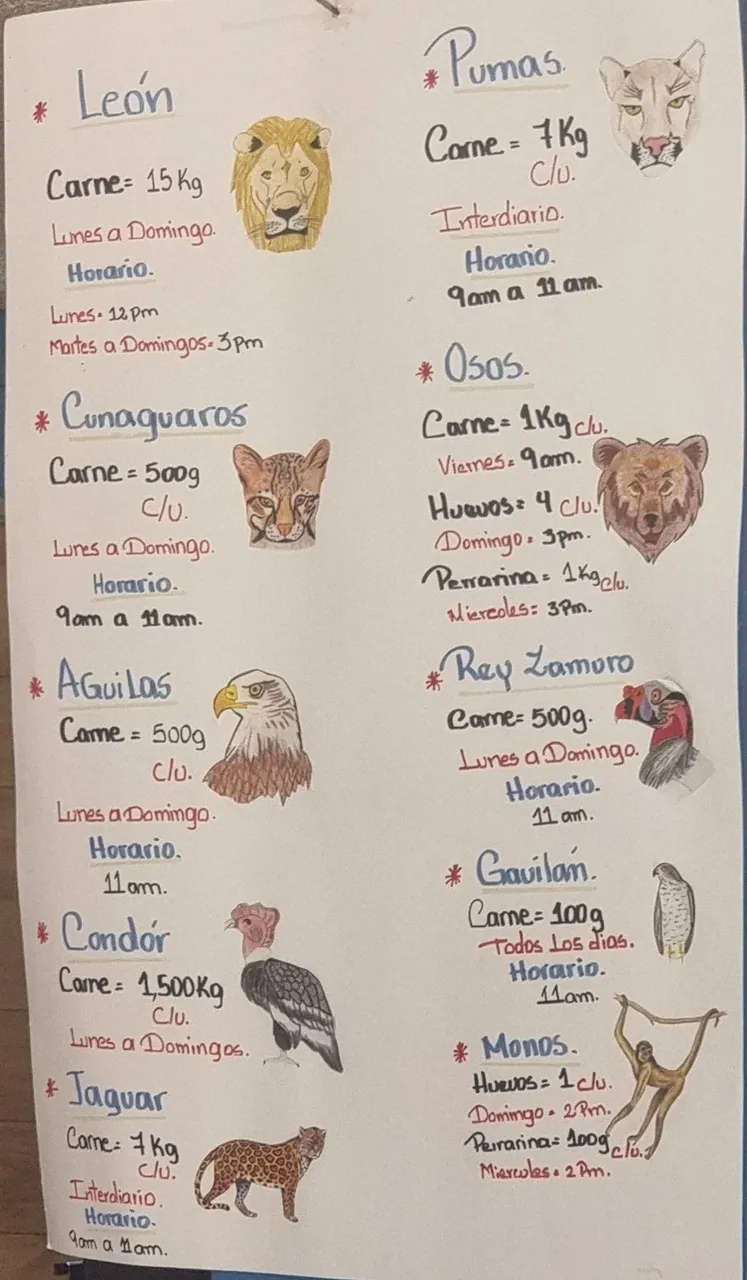 * León
Carne = 15 Kg
Lunes a Domingo.
Horario.
Lunes = 12 pm
Martes a Domingos = 3 pm
* Cunaguaros
Carne = 500g
C/U.
Lunes a Domingo.
Horario.
9am a 11am.
* AGuiLas
Carne = 500g
C/U.
Lunes a Domingo.
Horario.
11am.
* Condór
Carne = 1,500Kg
C/u.
Lunes a Domingos.
* Jaguar
Carne = 7 Kg
C/U.
Interdiario.
Horario.
9am a 11am.
* Pumas.
Carne = 7 Kg
C/U.
Interdiario.
Horario.
9am a 11 am.
* Osos.
Carne = 1Kg c/u.
Viernes = 9am.
Huevos = 4 c/u.
Domingo = 3pm.
Perrarina = 1Kg c/u.
Miercoles = 3Pm.
* Rey Zamuro
Carne = 500g.
Lunes a Domingo.
Horario.
11 am.
* Gavilán.
Carne = 100g
Todos Los dias.
Horario.
11am.
* Monos.
Huevos = 1 c/u.
Domingo = 2Pm.
Perrarina = 100g c/u.
Miercoles = 2Pm.